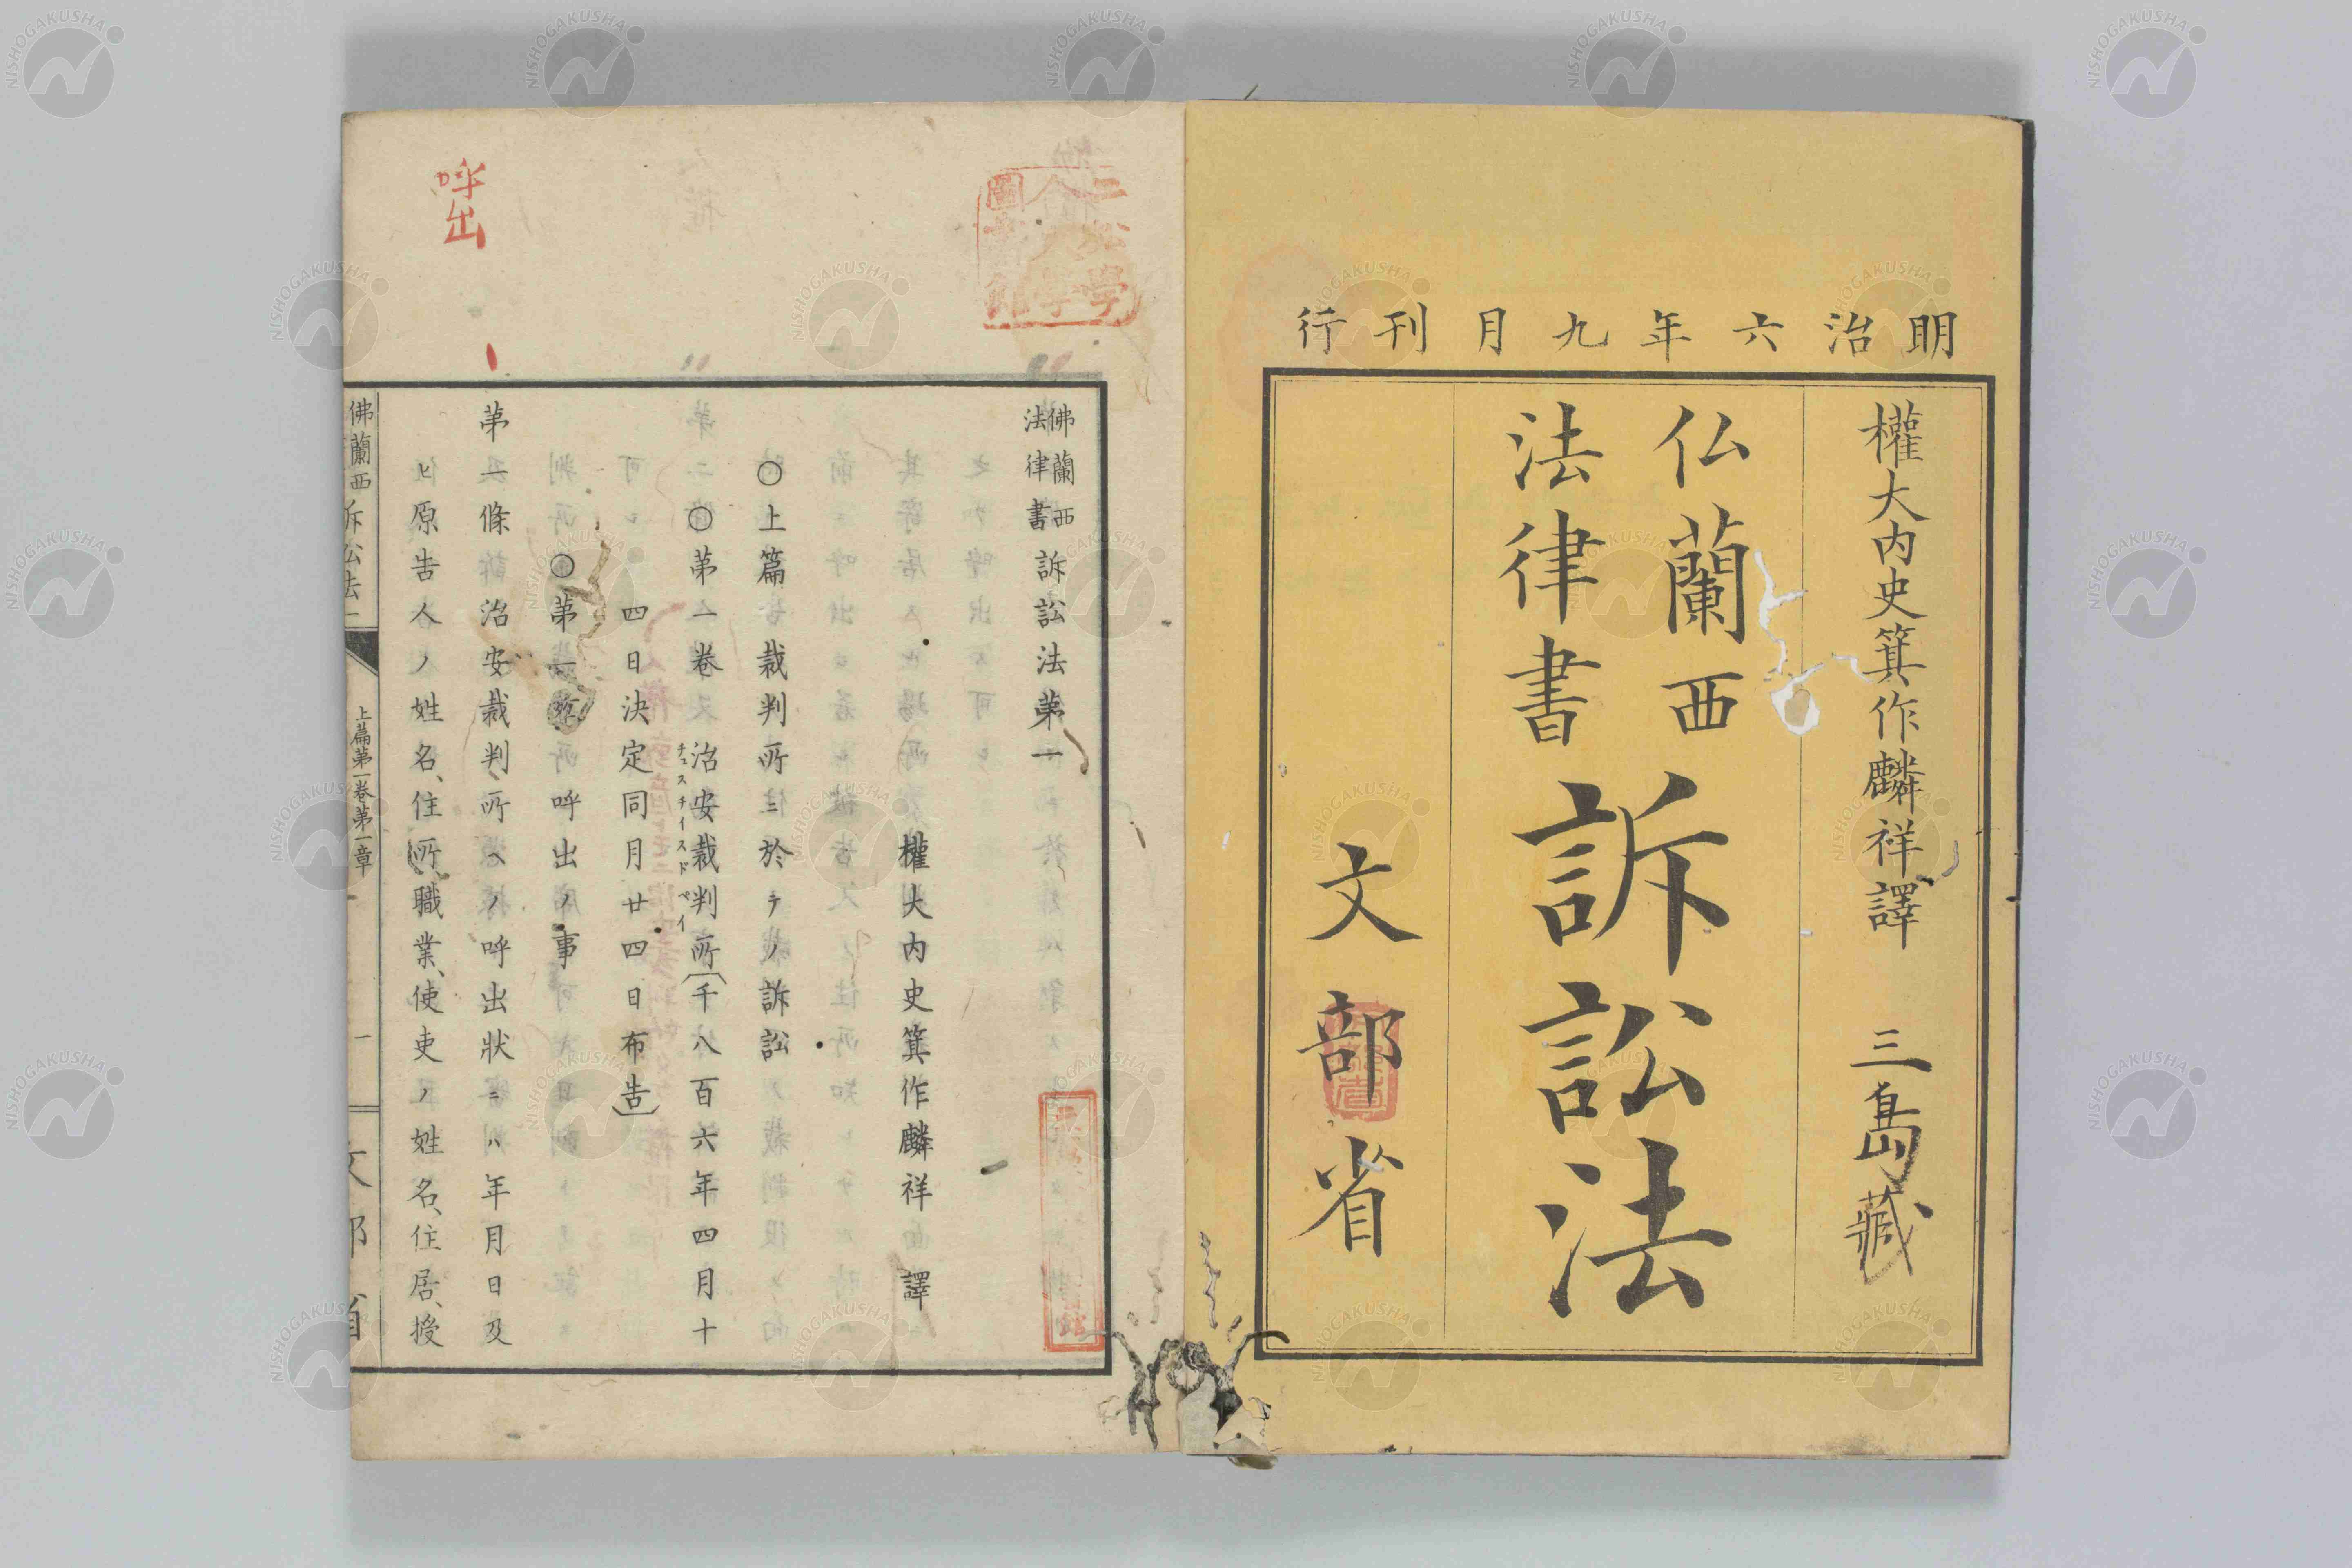 明治六年九月刊行
權大内史箕作麟祥譯
三島藏
仏蘭西
法律書
訴訟法
文部省
佛蘭西
法律書
訴訟法第一
權大内史箕作麟祥譯
〇上篇 裁判所ニ於テノ訴訟
〇第一卷 治安裁判所(千八百六年四月十
チュスチイスドペイ
四日決定同月廿四日布告)
〇第一章 呼出ノ事
第一條 治安裁判所ヘノ呼出狀ニハ年月日及
ヒ原告人ノ姓名、住所、職業、使吏ノ姓名、住居、授
呼出
佛蘭西訴訟法一
上篇第一卷第一章
一
文部省
二松學
圖書館
NISHOGAKUSHA